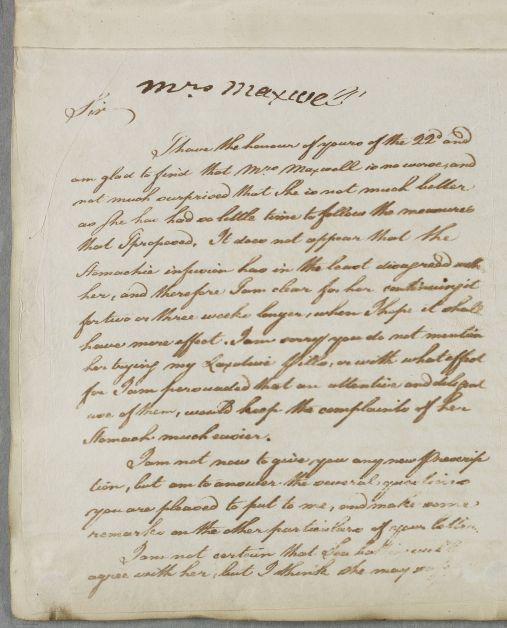 Mrs Maxwell
Sir
I have the honour of yours of the 22d and
am glad to find that Mrs Maxwell is no worse, and
not much surprised that She is not much better
as She has had so little time to follow the measures
that I proposed. It does not appear that the
Stomachic infusion has in the least disagreed with
her, and therefore I am clear for her continuing it
for two or three weeks longer, when I hope it shall
have more effect. I am sorry you do not mention
her trying my Laxative Pills, or with what effect
for I am persuaded that an attentive and diligent
use of them, would keep the complaints of her
Stomach much easier.
I am not now to give you any new Prescrip
tion, but am to answer the several questions
you are pleased to put to me, and make some
remarks on the other particulars of your letter.
I am not certain that Sea bathing will
agree with her, but I think she may